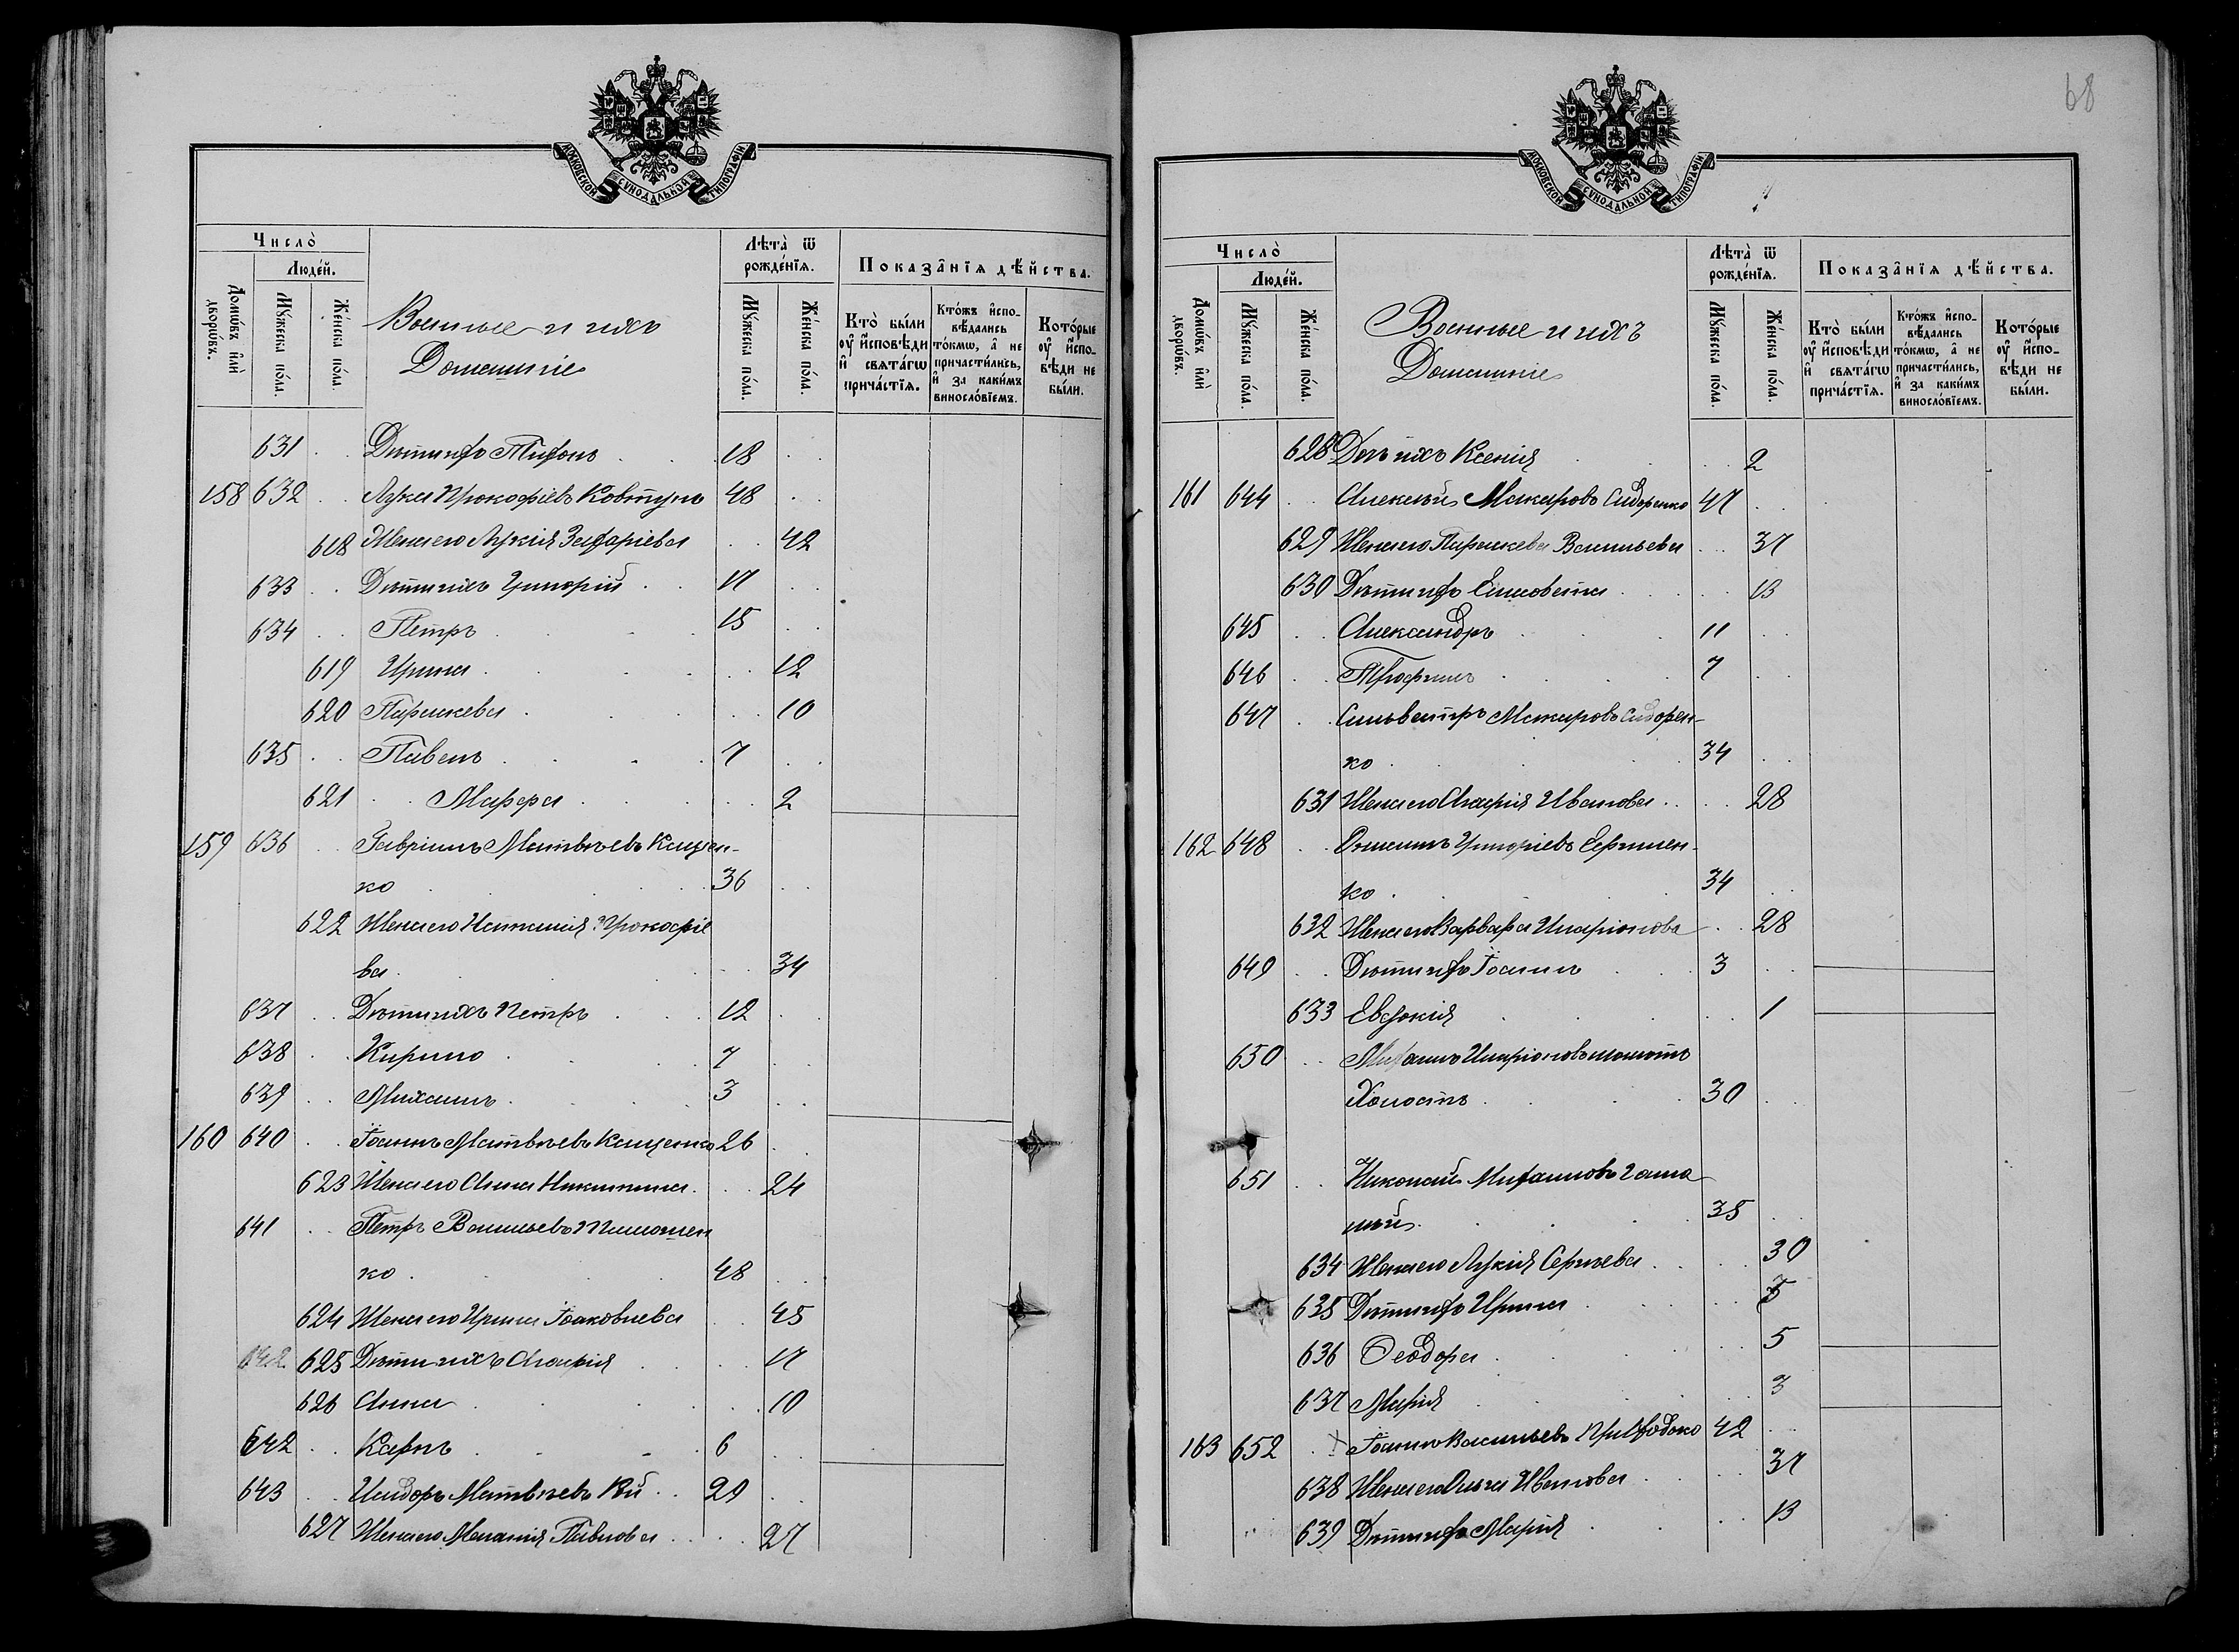 МОСКОВСКОЙ СѴНОДАЛЬНОЙ ТИПОГРАФІИ
Число̀
Людей.
Домѡвъ и҆лѝ дворѡвъ.
Мꙋжеска пола.
Женска пола.
Военные и ихъ
Домашніе
Лѣта̀ ѿ рожденїѧ.
Мꙋжеска пола.
Женска пола.
Показанїѧ дѣйства.
Кто̀ были оу҆ и҆сповѣди и҆ свѧтагѡ причастїѧ.
Ктожъ и҆сповѣдались токмѡ, а҆ не причастились, и҆ за какимъ винословїемъ.
Которые оу҆ и҆сповѣди не были.
631 Дѣти ихъ Тихонъ 18
158 632 Лука Прокофіевъ Ковтунъ 48
618 Жена его Лукія Захаріева 42
633 Дѣти ихъ Григорій 17
634 Петръ 15
619 Ирина 12
620 Параскева 10
635 Павелъ 7
621 Марфа 2
159 636 Гавріилъ Матвѣевъ Кащен-
ко 36
622 Жена его Наталія Прокофіе
ва 34
637 Дѣти ихъ Петръ 12
638 Кирилъ 7
639 Михаилъ 3
160 640 Іоаннъ Матвѣевъ Кащенко 26
623 Жена его Анна Никитина 24
641 Петръ Васильевъ Тимошен
ко 48
624 Жена его Ирина Іаковлева 45
642 625 Дѣти ихъ Марія 17
626 Анна 10
642 Карпъ 6
643 Исидоръ Матвѣевъ Кій 29
627 Жена его Меланія Павлова 27
68
МОСКОВСКОЙ СѴНОДАЛЬНОЙ ТИПОГРАФІИ
Число̀
Людей.
Домѡвъ и҆лѝ дворѡвъ.
Мꙋжеска пола.
Женска пола.
Военные и ихъ
Домашніе
Лѣта̀ ѿ рожденїѧ.
Мꙋжеска пола.
Женска пола.
Показанїѧ дѣйства.
Кто̀ были оу҆ и҆сповѣди и҆ свѧтагѡ причастїѧ.
Ктожъ и҆сповѣдались токмѡ, а҆ не причастились, и҆ за какимъ винословїемъ.
Которые оу҆ и҆сповѣди не были.
628 Дочь ихъ Ксенія 2
161 644 Алексѣй Макаровъ Сидоренко 47
629 Жена его Параскева Васильева 37
630 Дѣти ихъ Елисавета 13
645 Александръ 11
646 Трофимъ 7
647 Сильвестръ Макаровъ Сидорен-
ко 34
631 Жена его Марія Иванова 28
162 648 Григоріевъ Ефимен-
ко 34
632 Жена его Варвара Иларіонова 28
649 Дѣти ихъ Іоаннъ 3
633 Евдокія 1
650 Михаилъ Иларіоновъ
Холостъ 30
651 Николай Михаиловъ
35
634 Жена его Лукія Сергѣева 30
635 Дѣти ихъ Ирина 7
636 Ѳеодора 5
637 Марія 3
163 652 Іоаннъ Васильевъ Приходько 42
638 Жена его Ольга Иванова 37
639 Дѣти ихъ Марія 13